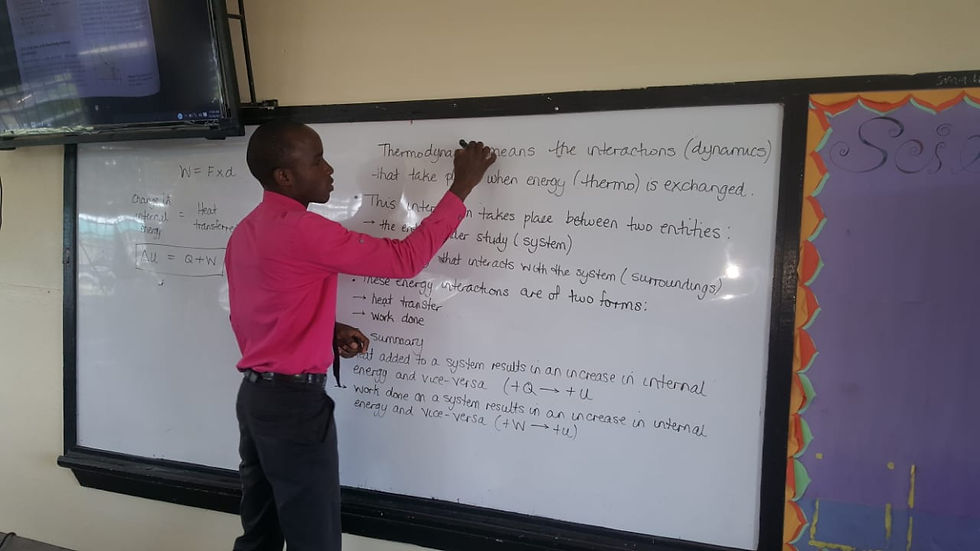 W = F x d
change in
internal = Heat
energy transferre
ΔU = Q + W
Thermodyna means the interactions (dynamics)
that take pl when energy (thermo) is exchanged.
• This inter n takes place between two entities:
→ the en der study (system)
that interacts with the system (surroundings)
• These energy interactions are of two forms:
→ heat transfer
→ work done
summary
eat added to a system results in an increase in internal
energy and vice-versa (+Q → +U
work done on a system results in an increase in internal
energy and vice-versa (+W → +U)
Sci